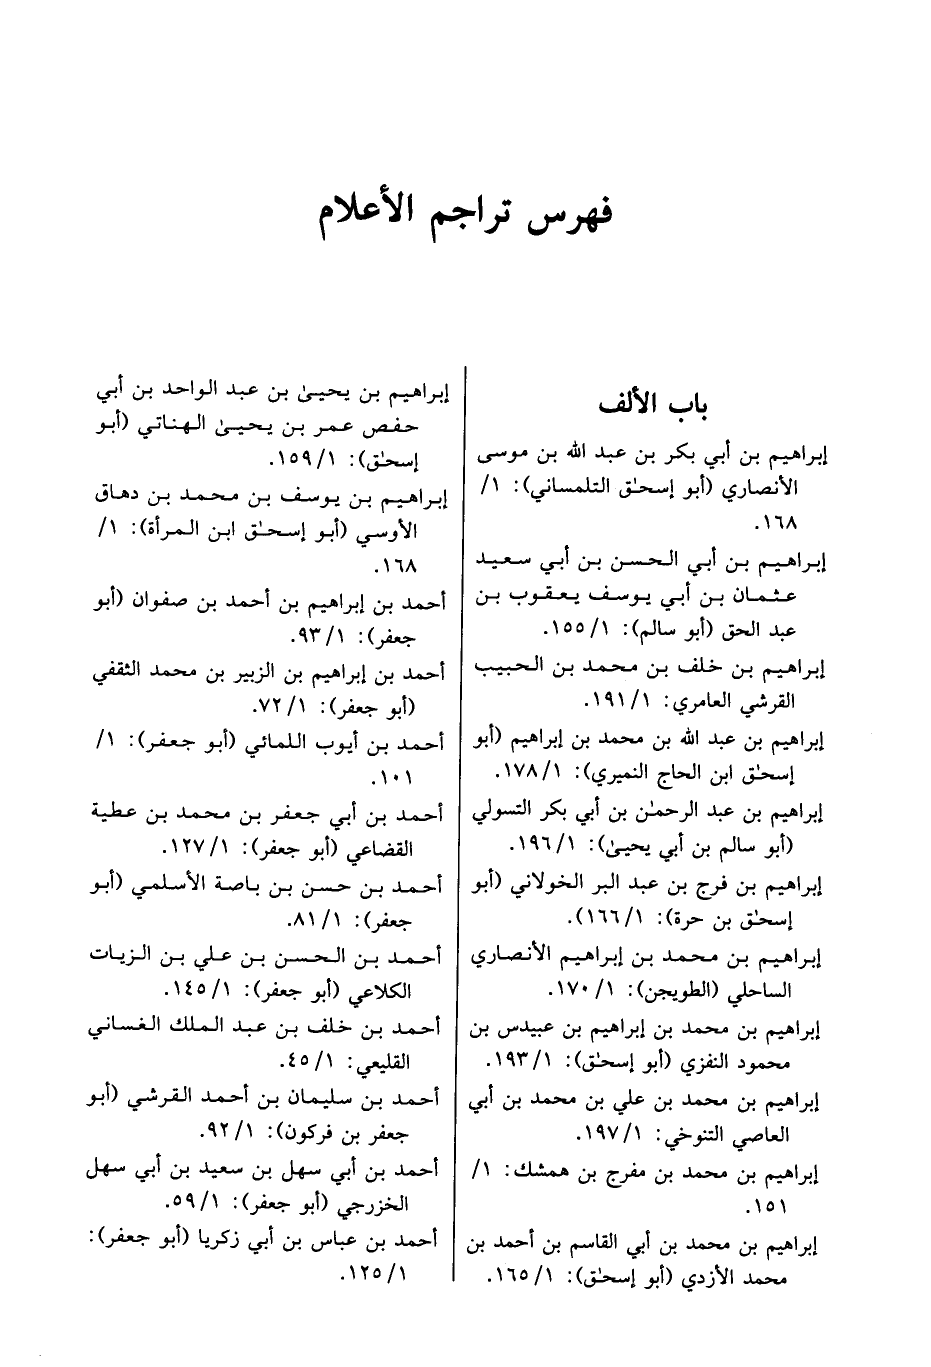 فهرس تراجم الأعلام
باب الألف
إبراهيم بن أبي بكر بن عبد الله بن موسى
الأنصاري (أبو إسحٰق التلمساني): ١/
١٦٨.
إبراهيم بن أبي الحسن بن أبي سعيد
عثمان بن أبي يوسف يعقوب بن
عبد الحق (أبو سالم): ١/ ١٥٥.
إبراهيم بن خلف بن محمد بن الحبيب
القرشي العامري: ١/ ١٩١.
إبراهيم بن عبد الله بن محمد بن إبراهيم (أبو
إسحٰق ابن الحاج النميري): ١/ ١٧٨.
إبراهيم بن عبد الرحمٰن بن أبي بكر التسولي
(أبو سالم بن أبي يحيىٰ): ١/ ١٩٦.
إبراهيم بن فرج بن عبد البر الخولاني (أبو
إسحٰق بن حرة): ١/ ١٦٦).
إبراهيم بن محمد بن إبراهيم الأنصاري
الساحلي (الطويجن): ١/ ١٧٠.
إبراهيم بن محمد بن إبراهيم بن عبيدس بن
محمود النفزي (أبو إسحٰق): ١/ ١٩٣.
إبراهيم بن محمد بن علي بن محمد بن أبي
العاصي التنوخي: ١/ ١٩٧.
إبراهيم بن محمد بن مفرج بن همشك: ١/
١٥١.
إبراهيم بن محمد بن أبي القاسم بن أحمد بن
محمد الأزدي (أبو إسحٰق): ١/ ١٦٥.
إبراهيم بن يحيىٰ بن عبد الواحد بن أبي
حفص عمر بن يحيىٰ الهناتي (أبو
إسحٰق): ١/ ١٥٩.
إبراهيم بن يوسف بن محمد بن دهاق
الأوسي (أبو إسحٰق ابن المرأة): ١/
١٦٨.
أحمد بن إبراهيم بن أحمد بن صفوان (أبو
جعفر): ١/ ٩٣.
أحمد بن إبراهيم بن الزبير بن محمد الثقفي
(أبو جعفر): ١/ ٧٢.
أحمد بن أيوب اللمائي (أبو جعفر): ١/
١٠١.
أحمد بن أبي جعفر بن محمد بن عطية
القضاعي (أبو جعفر): ١/ ١٢٧.
أحمد بن حسن بن باصة الأسلمي (أبو
جعفر): ١/ ٨١.
أحمد بن الحسن بن علي بن الزيات
الكلاعي (أبو جعفر): ١/ ١٤٥.
أحمد بن خلف بن عبد الملك الغساني
القليعي: ١/ ٤٥.
أحمد بن سليمان بن أحمد القرشي (أبو
جعفر بن فركون): ١/ ٩٢.
أحمد بن أبي سهل بن سعيد بن أبي سهل
الخزرجي (أبو جعفر): ١/ ٥٩.
أحمد بن عباس بن أبي زكريا (أبو جعفر):
١/ ١٢٥.